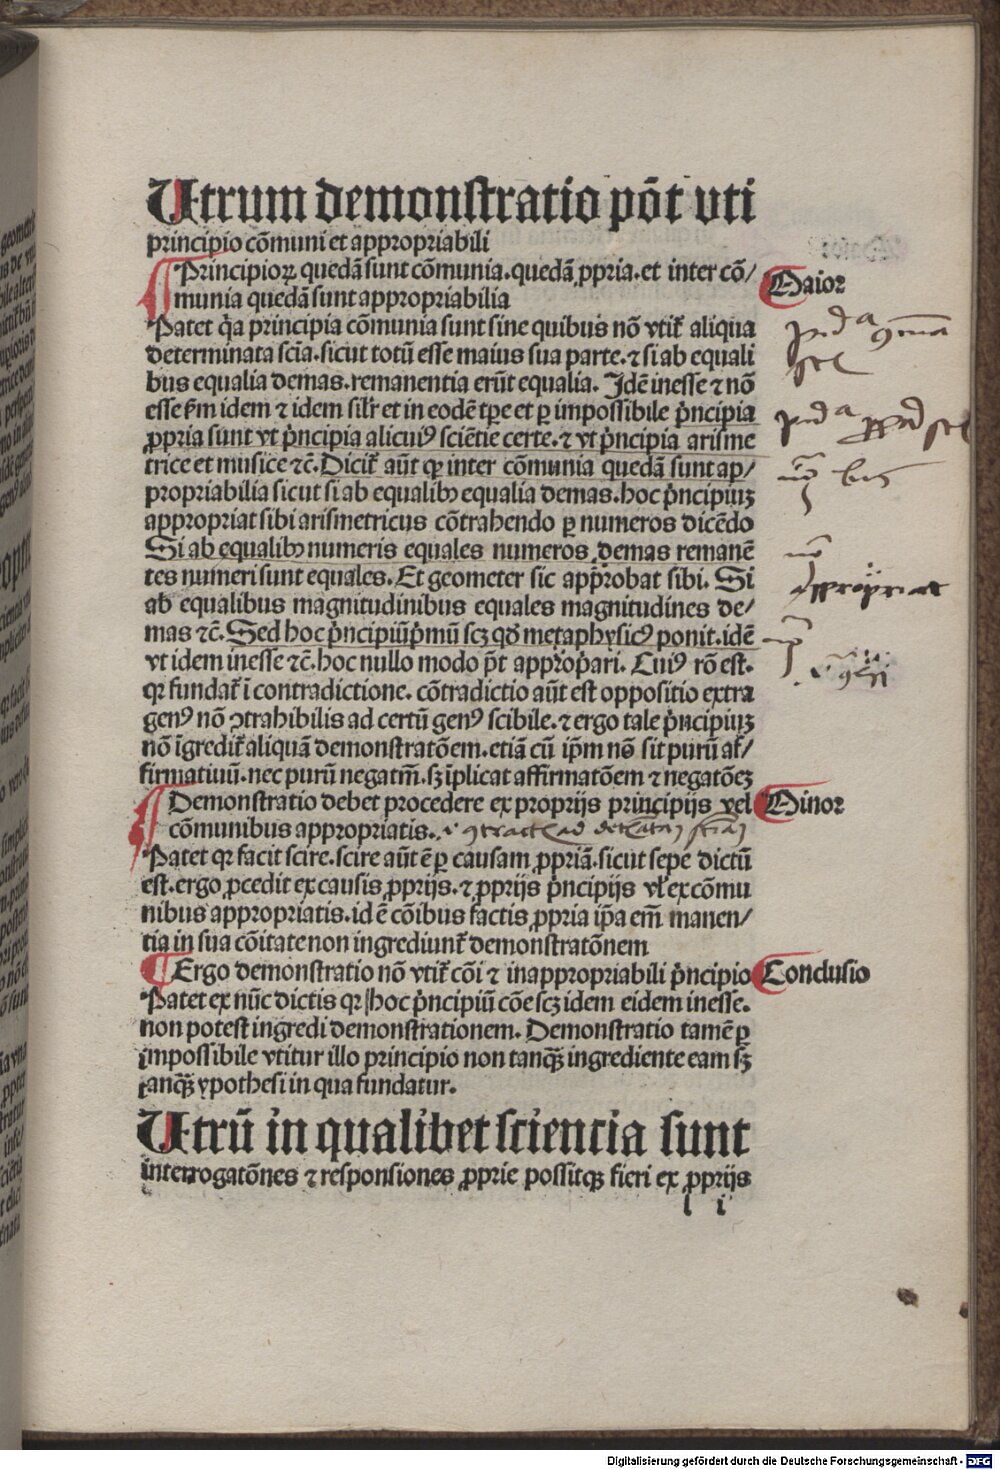 Utrum demonstratio põt uti
principio cõmuni et appropriabili
Principioꝝ quedã sunt cõmunia. quedã ꝓpria. et inter cõ/
Maior
munia quedã sunt appropriabilia
Patet q̃a principia cõmunia sunt sine quibus nõ vtit᷑ aliqua
determinata scĩa. sicut totũ esse maius sua parte. ⁊ si ab equali
bus equalia demas. remanentia erũt equalia. Idẽ inesse ⁊ nõ
esse ẜm idem ⁊ idem sil'r et in eodẽ tp̃e et ꝑ impossibile p̃ncipia
ꝓpria sunt vt p̃ncipia alicuiꝰ sciẽtie certe. ⁊ vt p̃ncipia arisme
trice et musice ⁊c̃. Dicit᷑ aũt ꝙ inter cõmunia quedã sunt ap/
propriabilia sicut si ab equalibꝫ equalia demas. hoc p̃ncipiuꝫ
appropriat sibi arismetricus cõtrahendo ꝑ numeros dicẽdo
Si ab equalibꝫ numeris equales numeros demas remanẽ
tes numeri sunt equales. Et geometer sic app̃robat sibi. Si
appropriat
ab equalibus magnitudinibus equales magnitudines de/
mas ⁊c̃. Sed hoc p̃ncipiũ p̃mũ scꝫ qd̓ metaphysicꝰ ponit. idẽ
vt idem inesse ⁊c̃. hoc nullo modo p̃t approp̃ari. Cuiꝰ rõ est.
qꝛ fundat᷑ ĩ contradictione. cõtradictio aũt est oppositio extra
genꝰ nõ ꝯtrahibilis ad certũ genꝰ scibile. ⁊ ergo tale p̃ncipiuꝫ
nõ ĩgredit᷑ aliquã demonstratõem. etiã cũ ip̃m nõ sit purũ af/
firmatiuũ. nec purũ negatm̃. sꝫ ĩplicat affirmatõem ⁊ negatõeꝫ
Demonstratio debet procedere ex proprijs principijs vel
Minor
cõmunibus appropriatis.
Patet qꝛ facit scire. scire aũt ẽ ꝑ causam ꝓpriã. sicut sepe dictũ
est. ergo ꝓcedit ex causis ꝓprijs. ⁊ ꝓprijs p̃ncipijs vl' ex cõmu
nibus appropriatis. id ẽ cõibus factis ꝓpria ip̃a em̃ manen/
tia in sua cõitate non ingrediunt᷑ demonstratõnem
Ergo demonstratio nõ vtit᷑ cõi ⁊ inappropriabili p̃ncipio
Conclusio
Patet ex nũc dictis qꝛ hoc p̃ncipiũ cõe scꝫ idem eidem inesse.
non potest ingredi demonstrationem. Demonstratio tamẽ ꝑ
impossibile vtitur illo principio non tanq̃ꝫ ingrediente eam sꝫ
tanq̃ꝫ ypothesi in qua fundatur.
Utrũ in qualibet sciencia sunt
interrogatõnes ⁊ responsiones ꝓprie possitqꝫ fieri ex ꝓprijs
l i
Digitalisierung gefördert durch die Deutsche Forschungsgemeinschaft - DFG